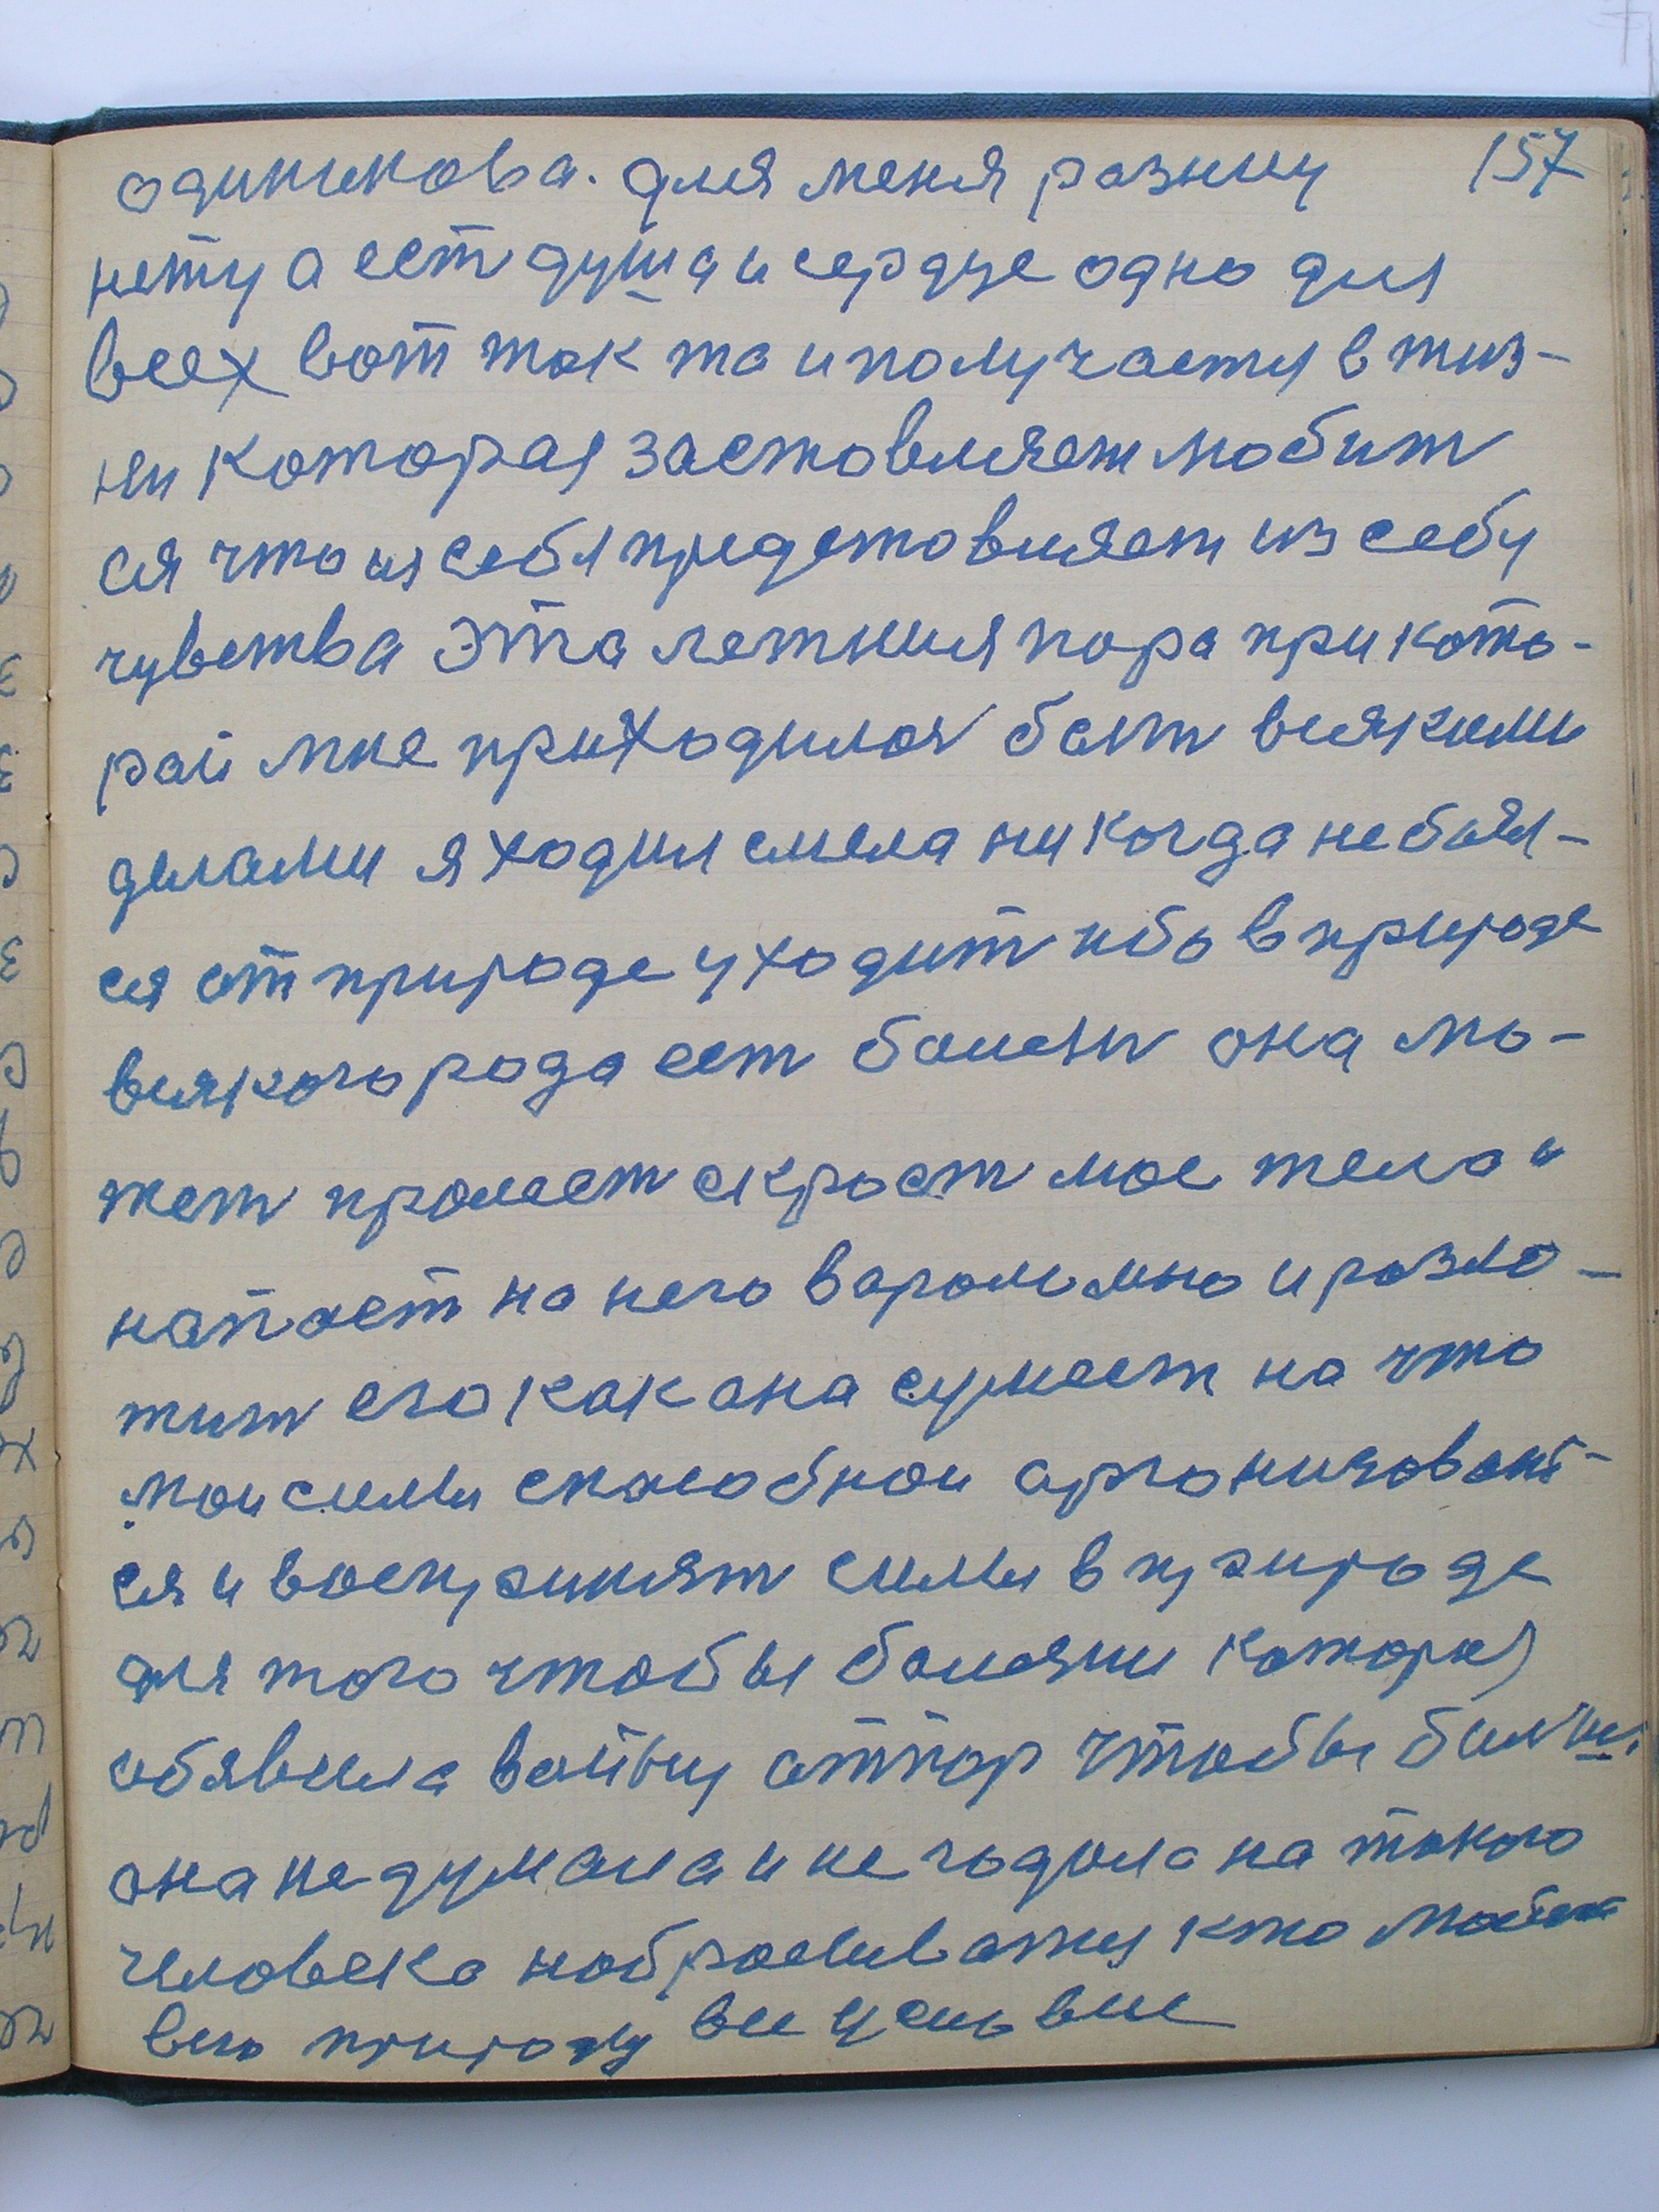 157
одиникова. для меня разницу
нету а ест душа и сердце одно для
всех вот так та и получается в жиз-
ни которая заставляет любит
ся что из себя представляет из себу
чувства эта летния пора при кото-
рай мне приходилося быт всякими
делами я ходил смела никогда не боял-
ся от природе уходит ибо в природе
всякого рода ест болезн она мо-
жет пролест скрост мое тело и
напает на него вароломно и разло-
жит его как она сумеет на что
мои силы способнои организоват-
ся и воспринят силы в природе
для того чтобы болезни которы
обявила войну отпор чтобы больш.
она не думала и не годила на такого
человека набрасыватся кто любит
всю природу все условие